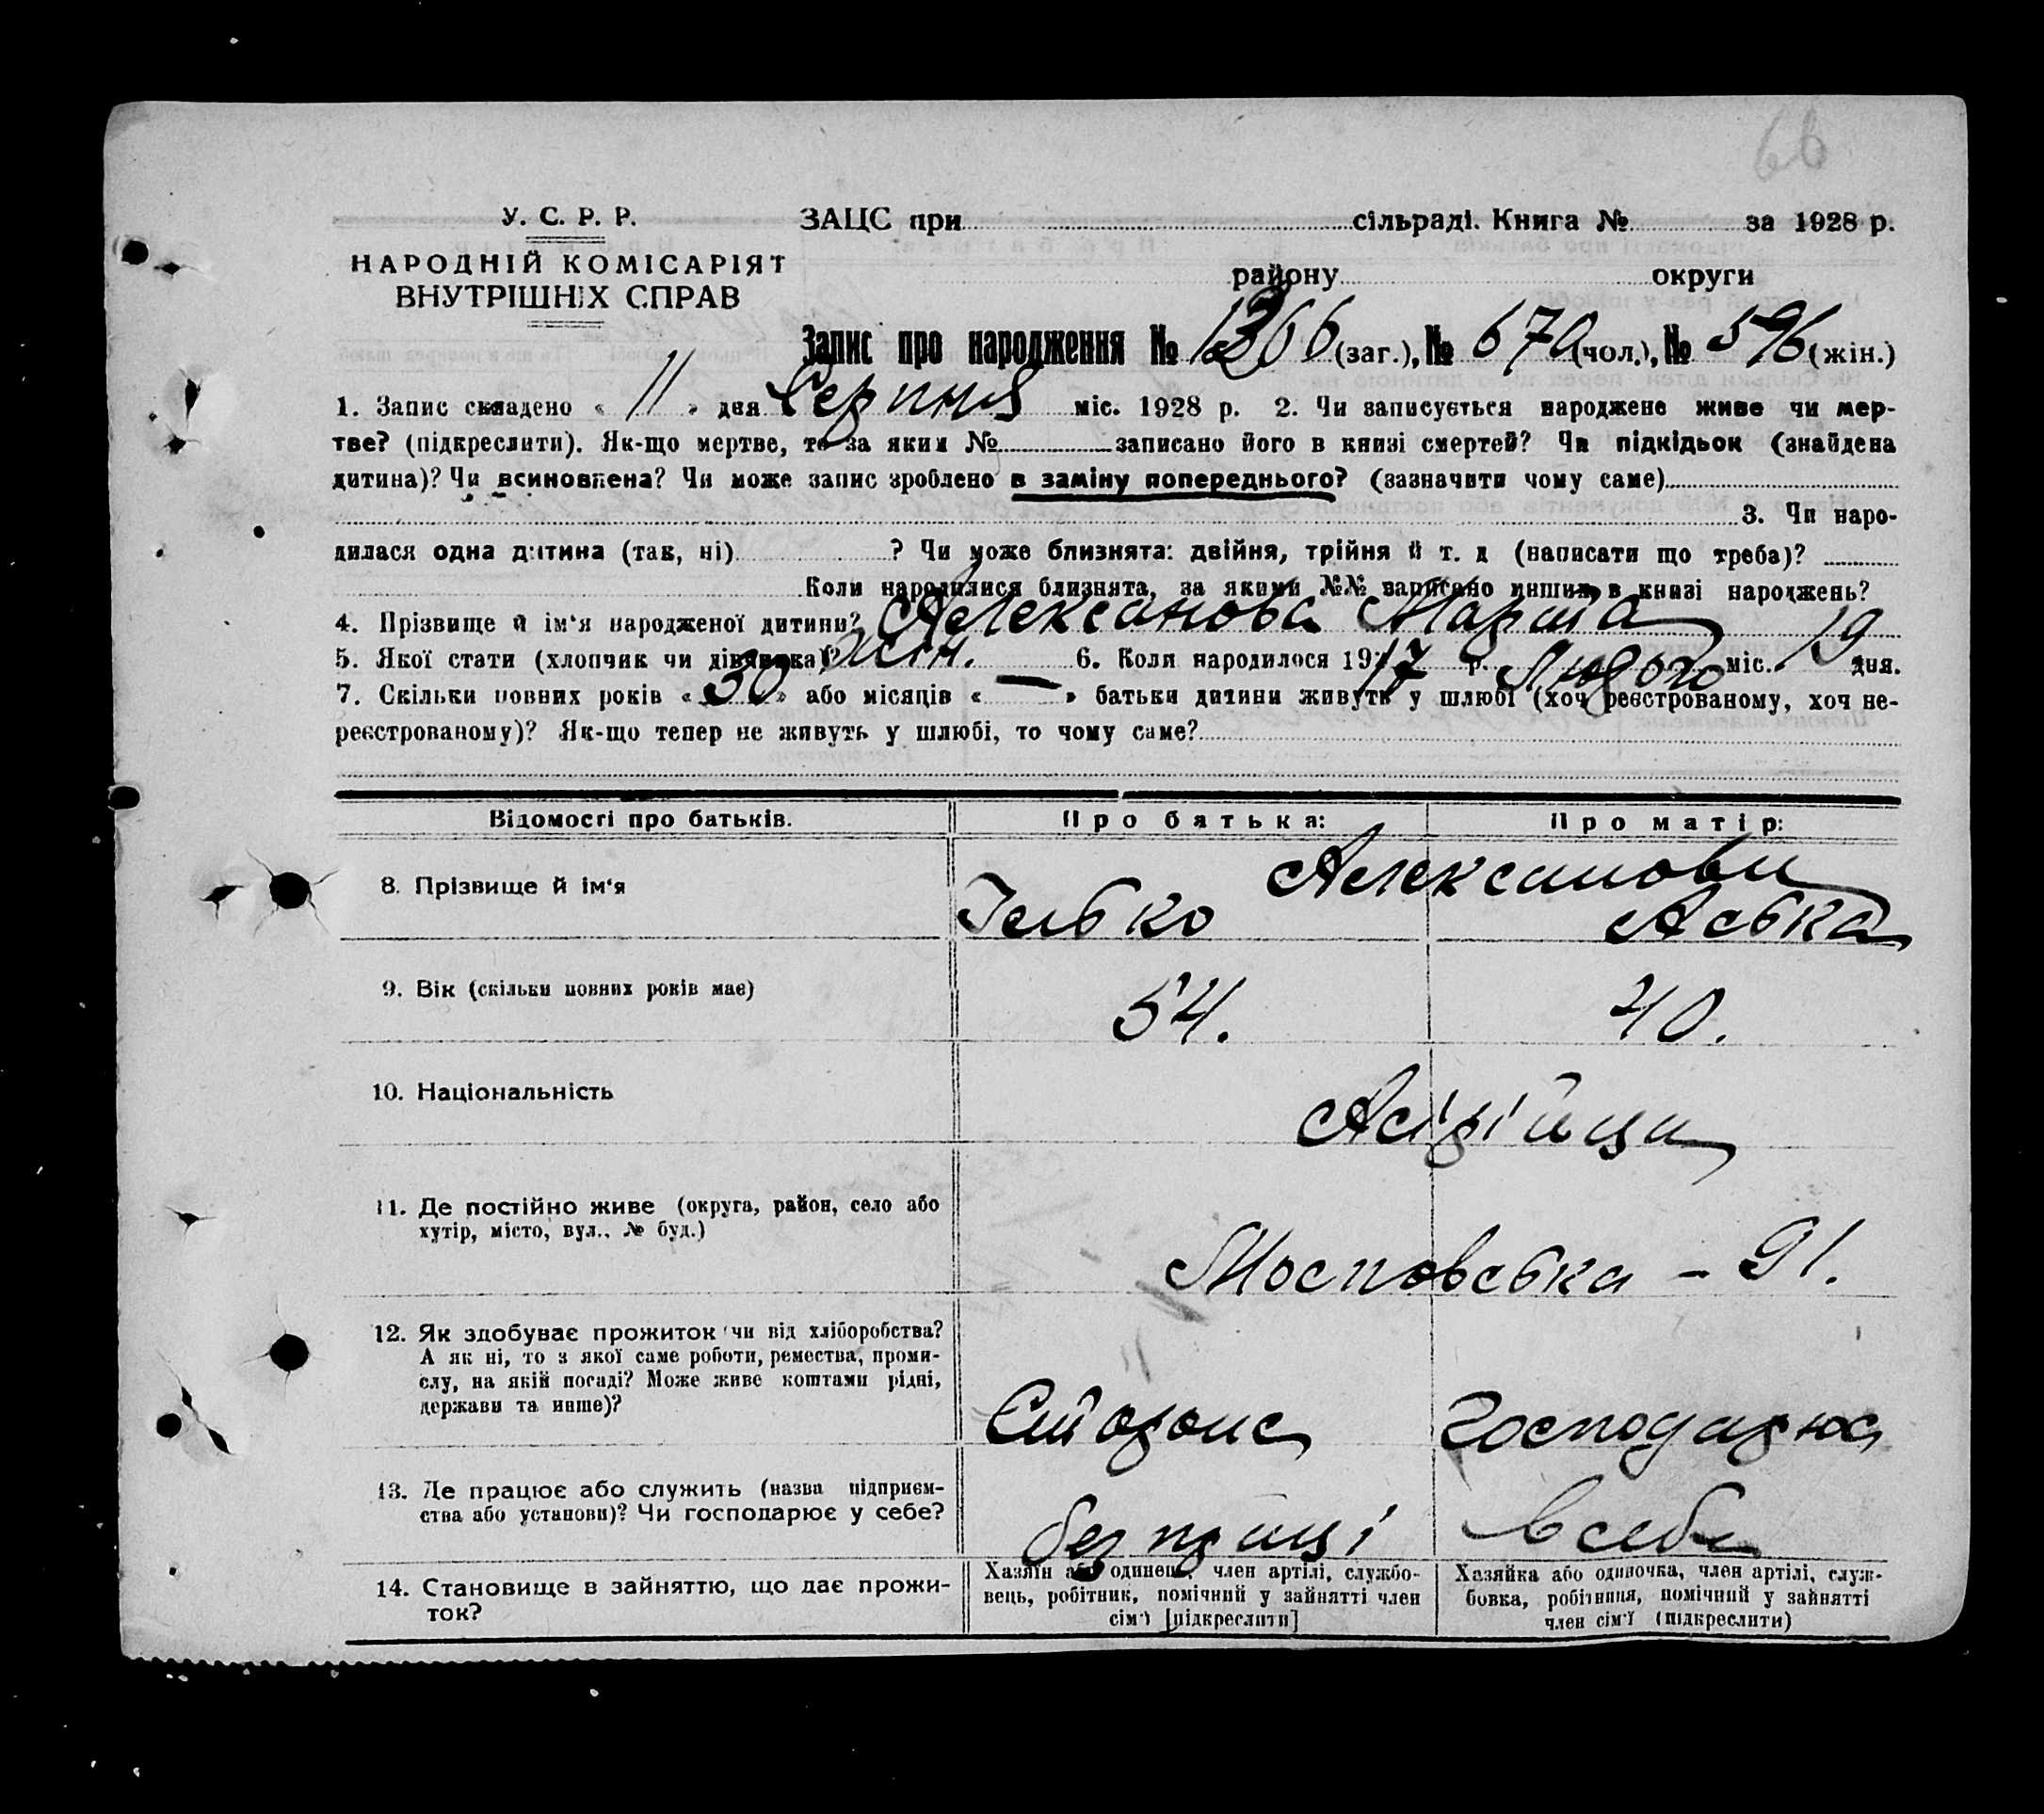 66
У. С. Р. Р.
НАРОДНІЙ КОМІСАРІЯТ
ВНУТРІШНІХ СПРАВ
ЗАЦС при сільраді. Книга № за 1928 р.
району округи
Запис про народження № 1266 (заг.), № 670 (чол.), № 596 (жін.)
1. Запис складено « 11 » дня Серпня міс. 1928 р. 2. Чи записується народжене живе чи мер-
тве? (підкреслити). Як-що мертве, то за яким № записано його в книзі смертей? Чи підкідьок (знайдена
дитина)? Чи всиновлена? Чи може запис зроблено в заміну попереднього? (зазначити чому саме)
3. Чи наро-
дилася одна дитина (так, ні) ? Чи може близнята: двійня, трійня й т. д (написати що треба)?
Коли народилися близнята, за якими №№ записано инших в книзі народжень?
4. Прізвище й ім‘я народженої дитини? Алексанова Марта
5. Якої стати (хлопчик чи дівчинка)? жін. 6. Коли народилося 1917 р. Лютого міс. 19 дня.
7. Скільки повних років « 30 » або місяців « — » батьки дитини живуть у шлюбі (хоч реєстрованому, хоч не-
реєстрованому)? Як-що тепер не живуть у шлюбі, то чому саме?
Відомості про батьків. Про батька: Про матір:
Алексанови
8. Прізвище й ім‘я Ісько Аська
9. Вік (скільки повних років має) 54. 40.
10. Національність Асірійци
11. Де постійно живе (округа, район, село або
хутір, місто, вул., № буд.)
Московська – 91.
12. Як здобуває прожиток чи від хліборобства?
А як ні, то з якої саме роботи, ремества, проми-
слу, на якій посаді? Може живе коштами рідні,
держави та инше)?
Сторож Господарює
13. Де працює або служить (назва підприєм-
ства або установи)? Чи господарює у себе?
без праці в себе
14. Становище в зайняттю, що дає прожи-
ток?
Хазяїн або одинець, член артілі, службо-
вець, робітник, помічний у зайнятті член
сім‘ї [підкреслити]
Хазяйка або одиночка, член артілі, служ-
бовка, робітниця, помічний у зайнятті
член сім‘ї (підкреслити)